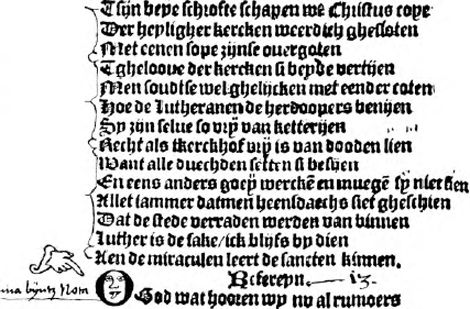 Tsijn beyde schrofte schapen wt Christus coye
Der heyligher kercken weerdich ghesloten
Met eenen sope zijnse ouergoten
Tghelooue der kercken si beyde vertijen
Men soudtse wel ghelijcken met eender coten
Hoe de Lutheranen de herdoopers benijen
Sy zijn selue so vrÿ van ketterijen
Recht als tkerckhof vrÿ is van dooden lien
Want alle duechden setten si besijen
En eens anders goey wercke͂ en mueghe͂ sÿ niet sien
Allet iammer datmen heensdaechs siet gheschien
Dat de stede verraden werden van binnen
Luther is de sake / ick blijfs by dien
Aen de miraculen leert de sancten kinnen.
Refereyn. 13.
na bijntz Nom
O God wat hooren wy nv al rumoers